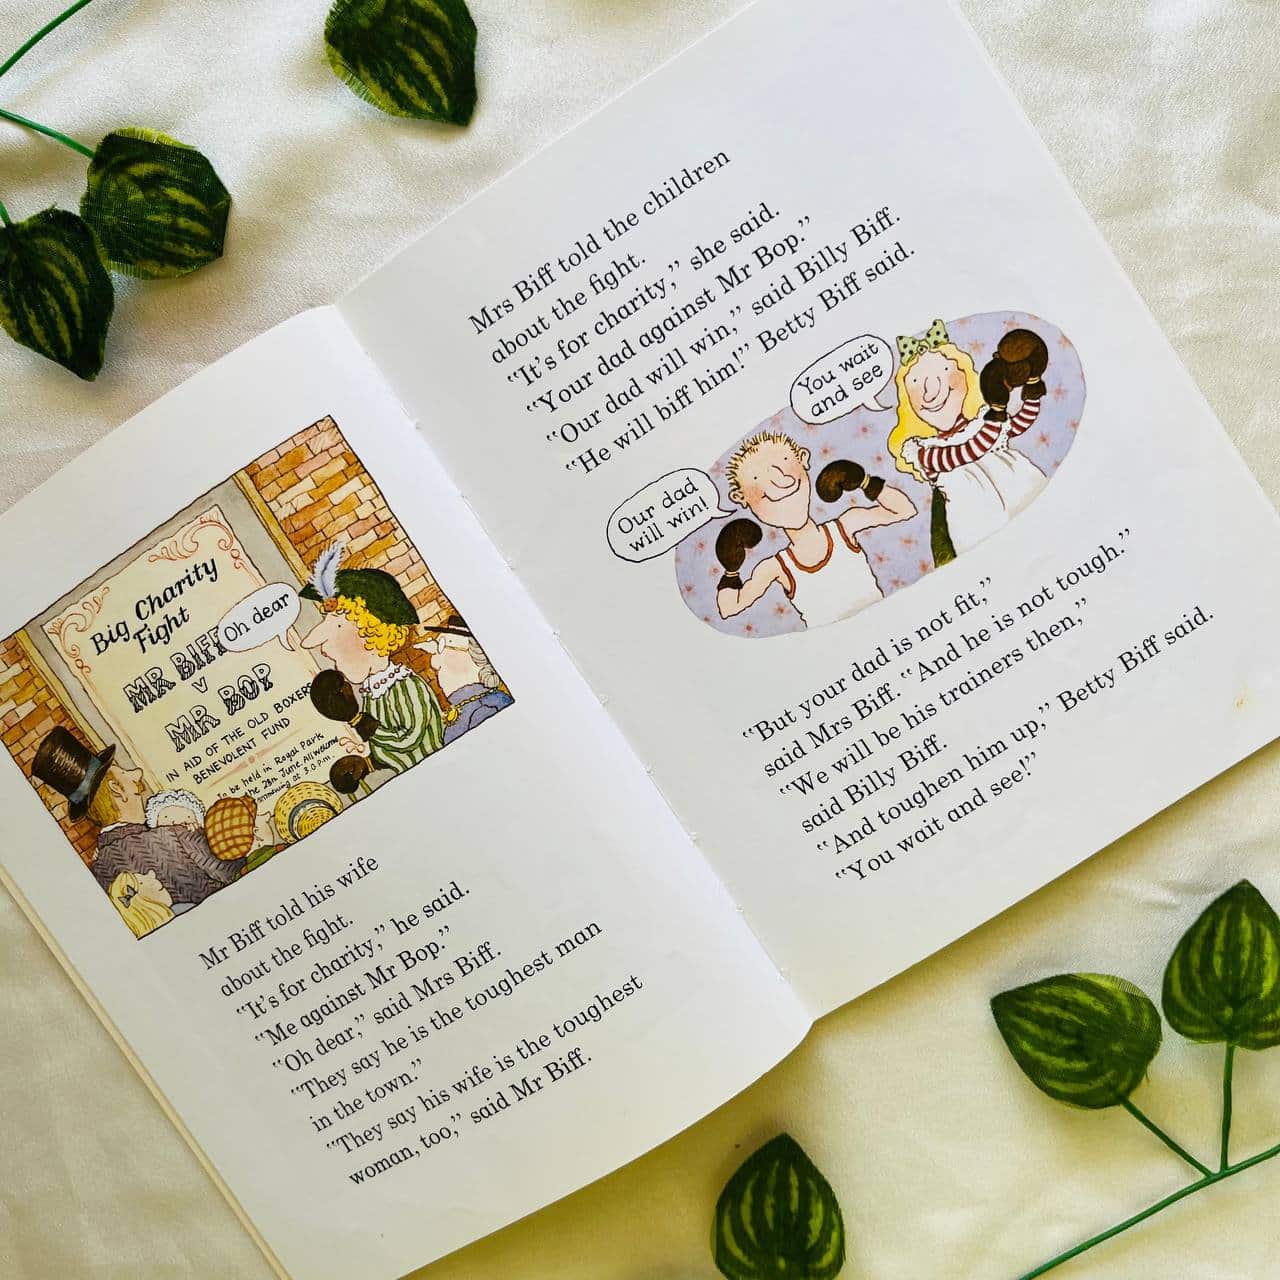 Big Charity
Fight
MR BIFF
V
MR BOP
IN AID OF THE OLD BOXERS
BENEVOLENT FUND
To be held in Royal Park
the 28th June. All Welcome
at 3.0 P.m.
Oh dear
Mr Biff told his wife
about the fight.
“It’s for charity,” he said.
“Me against Mr Bop.”
“Oh dear,” said Mrs Biff.
“They say he is the toughest man
in the town.”
“They say his wife is the toughest
woman, too,” said Mr Biff.
Mrs Biff told the children
about the fight.
“It’s for charity,” she said.
“Your dad against Mr Bop.”
“Our dad will win,” said Billy Biff.
“He will biff him!” Betty Biff said.
Our dad
will win!
You wait
and see
“But your dad is not fit,”
said Mrs Biff. “And he is not tough.”
“We will be his trainers then,”
said Billy Biff.
“And toughen him up,” Betty Biff said.
“You wait and see!”